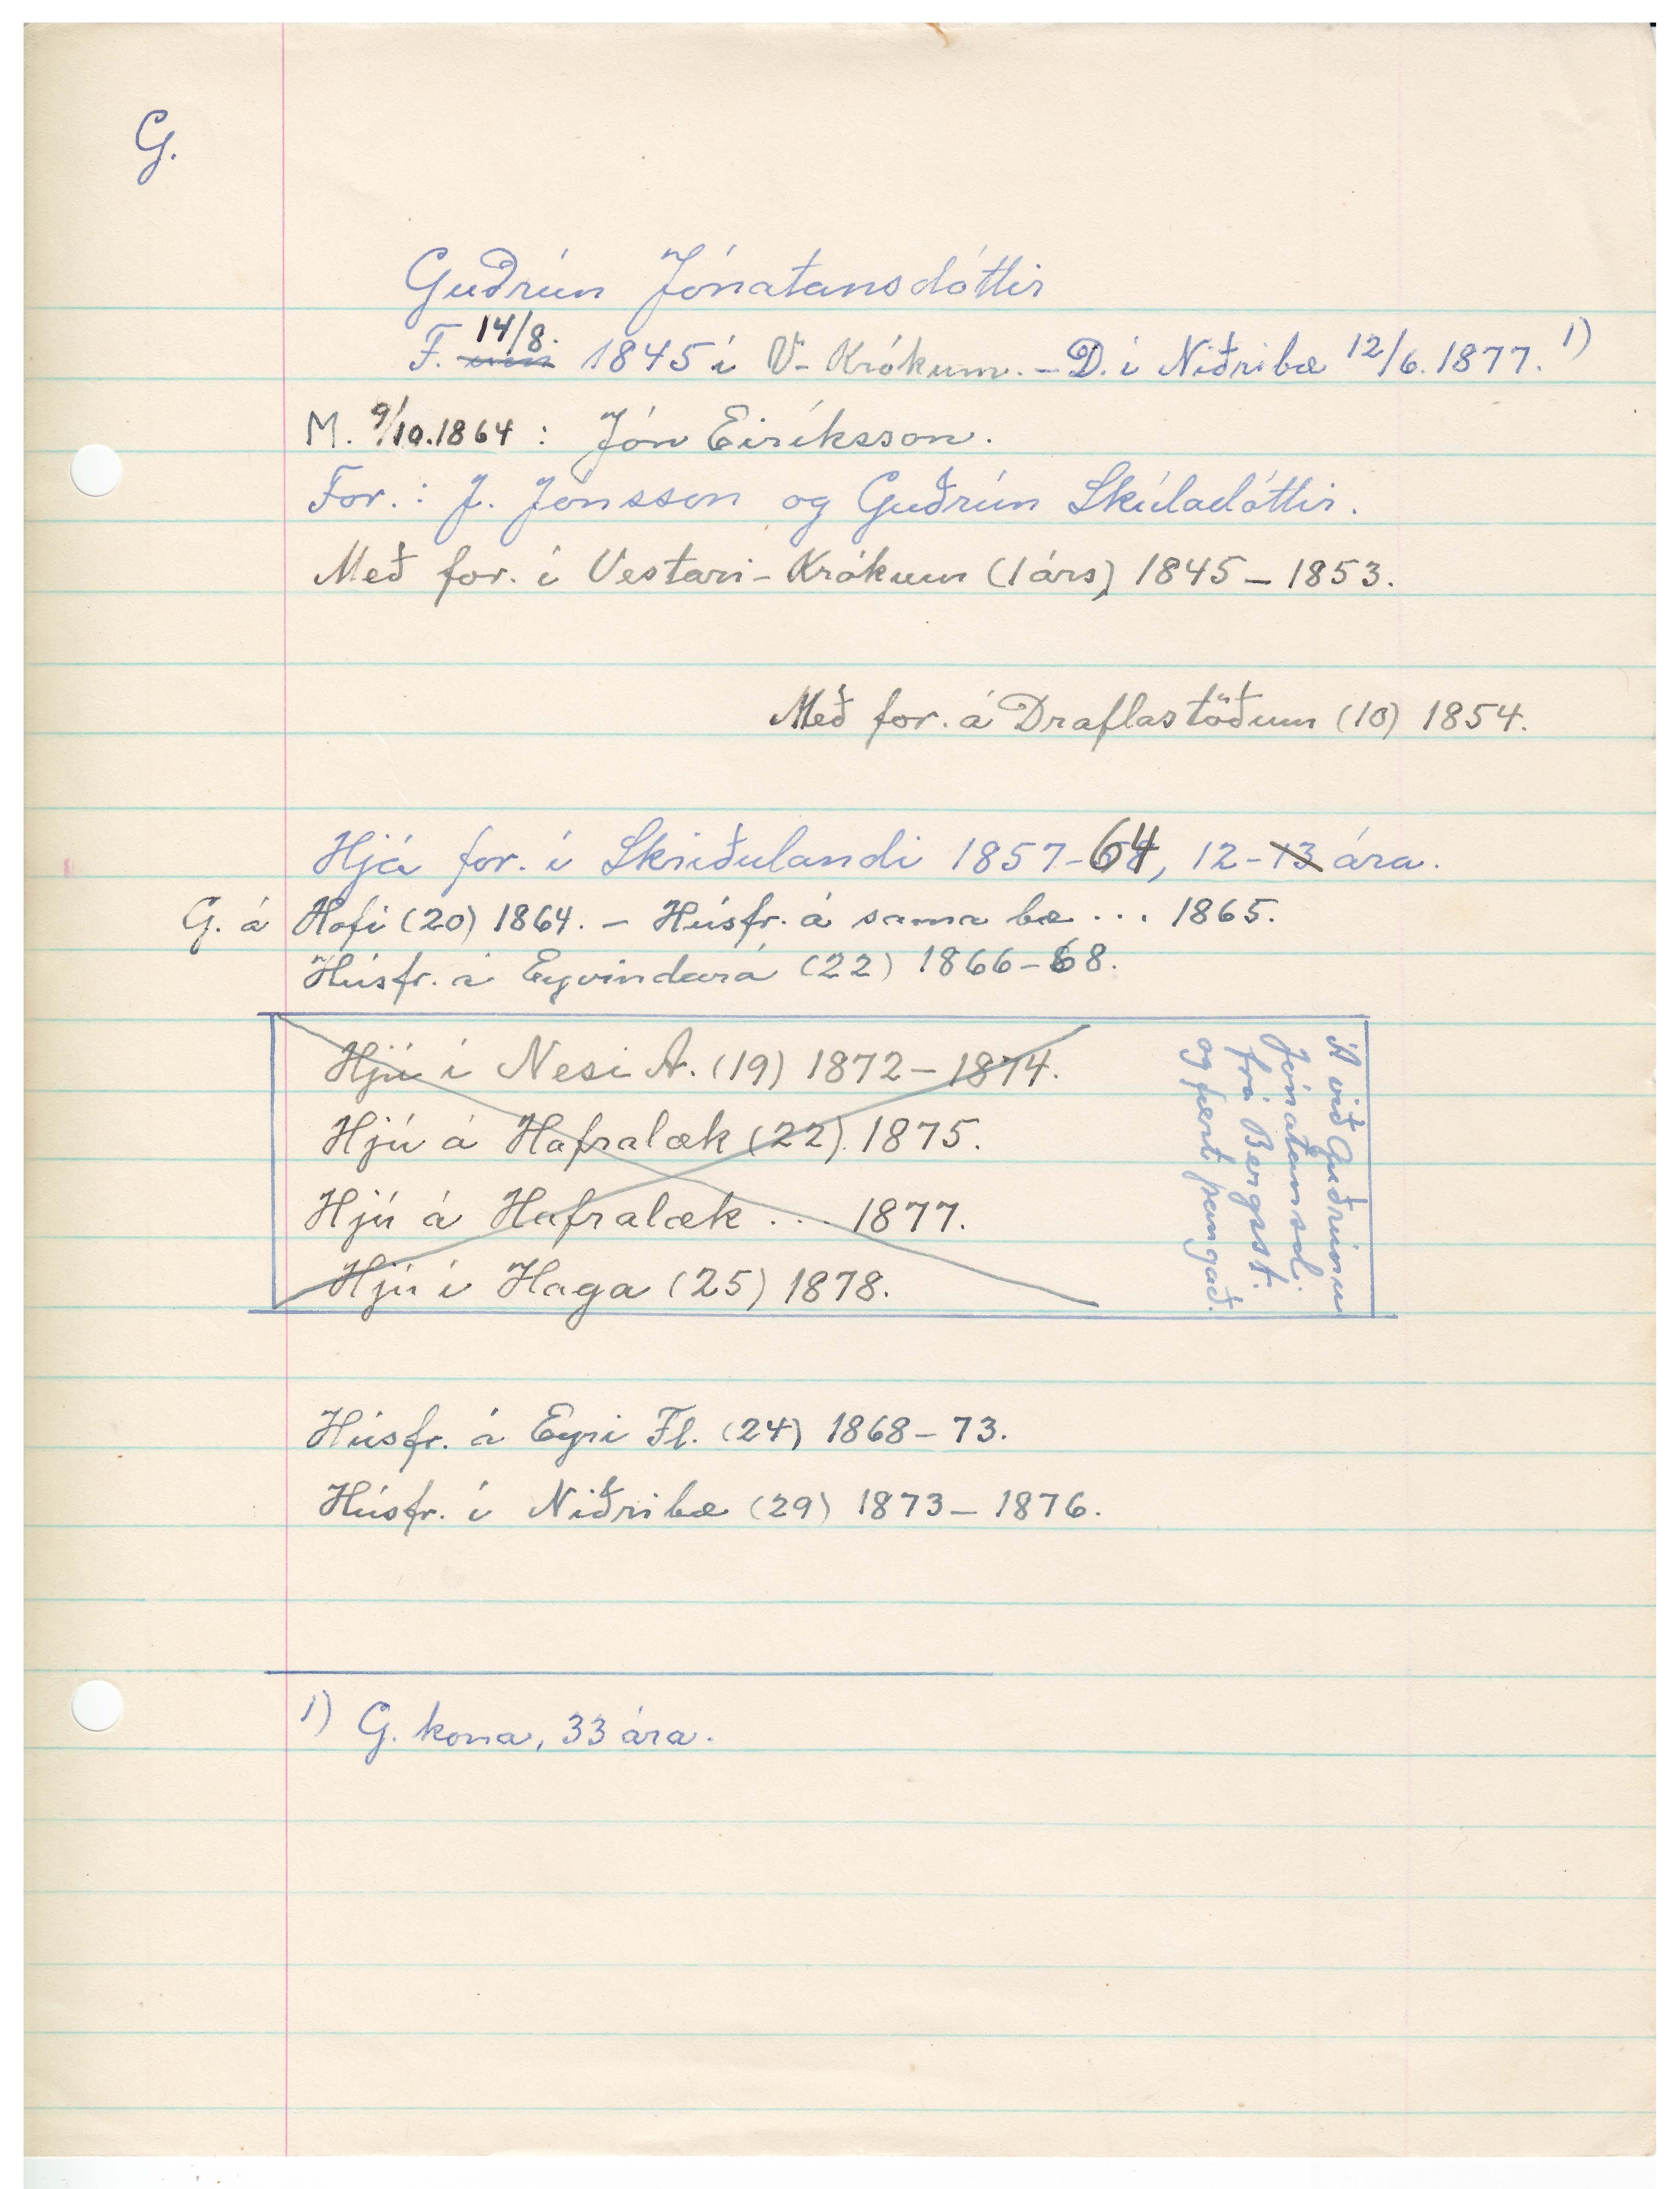 G.
Guðrún Jónatansdóttir
F. 14/8. 1845 í V-Krókum. - D. í Niðribæ 12/6. 1877. 1)
M. 9/10.1864 : Jón Eiríksson.
For. : J. Jónsson og Guðrún Skúladóttir.
Með for. í Vestari-Krókum (1 árs) 1845 - 1853.
Með for. á Draflastöðum (10) 1854.
Hjá for. í Skriðulandi 1857-64, 12-13 ára.
G. á Hofi (20) 1864. - Húsfr. á sama bæ ... 1865.
Húsfr. á Eyvindará (22) 1866-68.
Hjú í Nesi A. (19) 1872 - 1874.
Hjú á Hafralæk (22). 1875.
Hjú á Hafralæk ... 1877.
Hjú í Haga (25) 1878.
Á við Guðrúnu
Jónatansd.
frá Bergsst.
og fært þangað.
Húsfr. á Eyri Fl. (24) 1868 - 73.
Húsfr. í Niðribæ (29) 1873 - 1876.
1) G. kona, 33 ára.